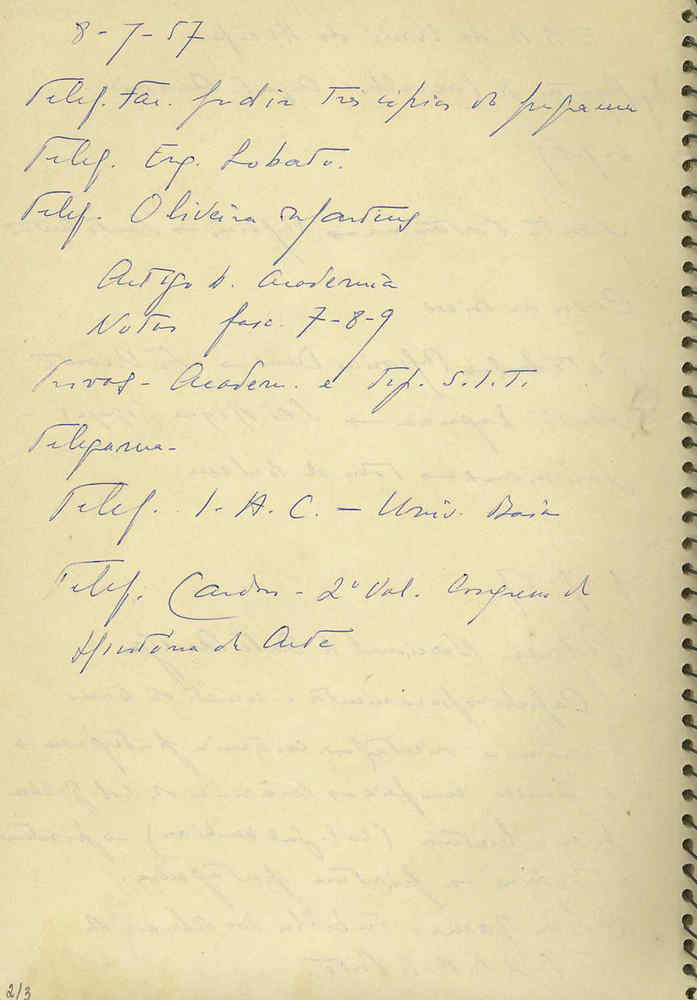 8-7-57
Telef. Fac. pedir três cópias do programa
Telef. Eng. Lobato.
Telef. Oliveira Martins
Artigo d. Academia
Notas fasc. 7-8-9
Provas - Academ. e Tip. S.I.T.
Telegrama -
Telef. I.A.C. - Univ. Baía
Telef. Cardoso - 2º Vol. Congresso de
História de Arte
2/3